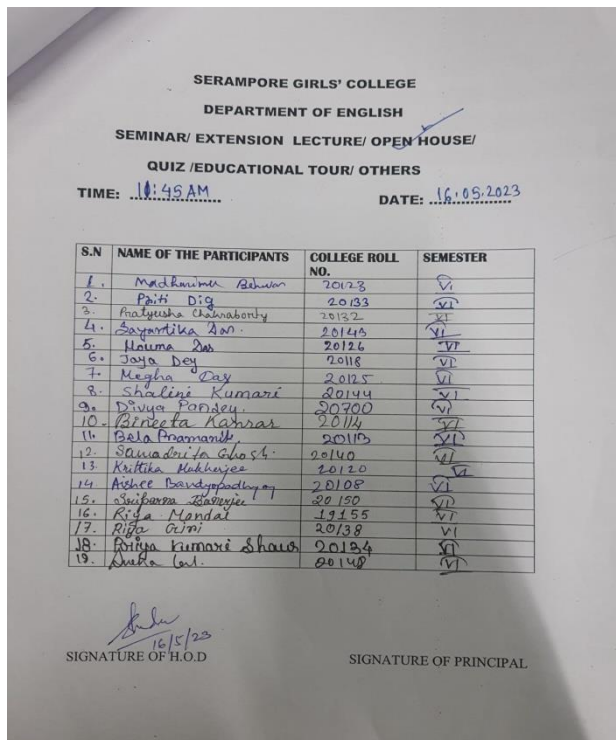 SERAMPORE GIRLS' COLLEGE
DEPARTMENT OF ENGLISH
SEMINAR/ EXTENSION LECTURE/ OPEN HOUSE/
QUIZ /EDUCATIONAL TOUR/ OTHERS
TIME: 11:45 AM DATE: 16.05.2023
S.N NAME OF THE PARTICIPANTS COLLEGE ROLL NO. SEMESTER
1. 20123 VI
2. Priti Dig 20133 VI
3. Pratyusha Chakraborty 20132 VI
4. Sayantika Das. 20143 VI
5. Mouma Das 20126 VI
6. Jaya Dey 20118 VI
7. Megha Das 20125 VI
8. Shalini Kumari 20144 VI
9. Divya Pandey. 20700 VI
10. Bineeta 20114 VI
11. Bela Pramanik 20113 VI
12. Samadrita Ghosh. 20140 VI
13. Krittika Mukherjee 20120 VI
14. Aishee Bandyopadhyay 20108 VI
15. Suparna Banerjee 20150 VI
16. Riya Mondal 19155 VI
17. Riya Giri 20138 VI
18. Priya Kumari Shaw 20134 VI
19. 20148 VI
16/5/23
SIGNATURE OF H.O.D SIGNATURE OF PRINCIPAL